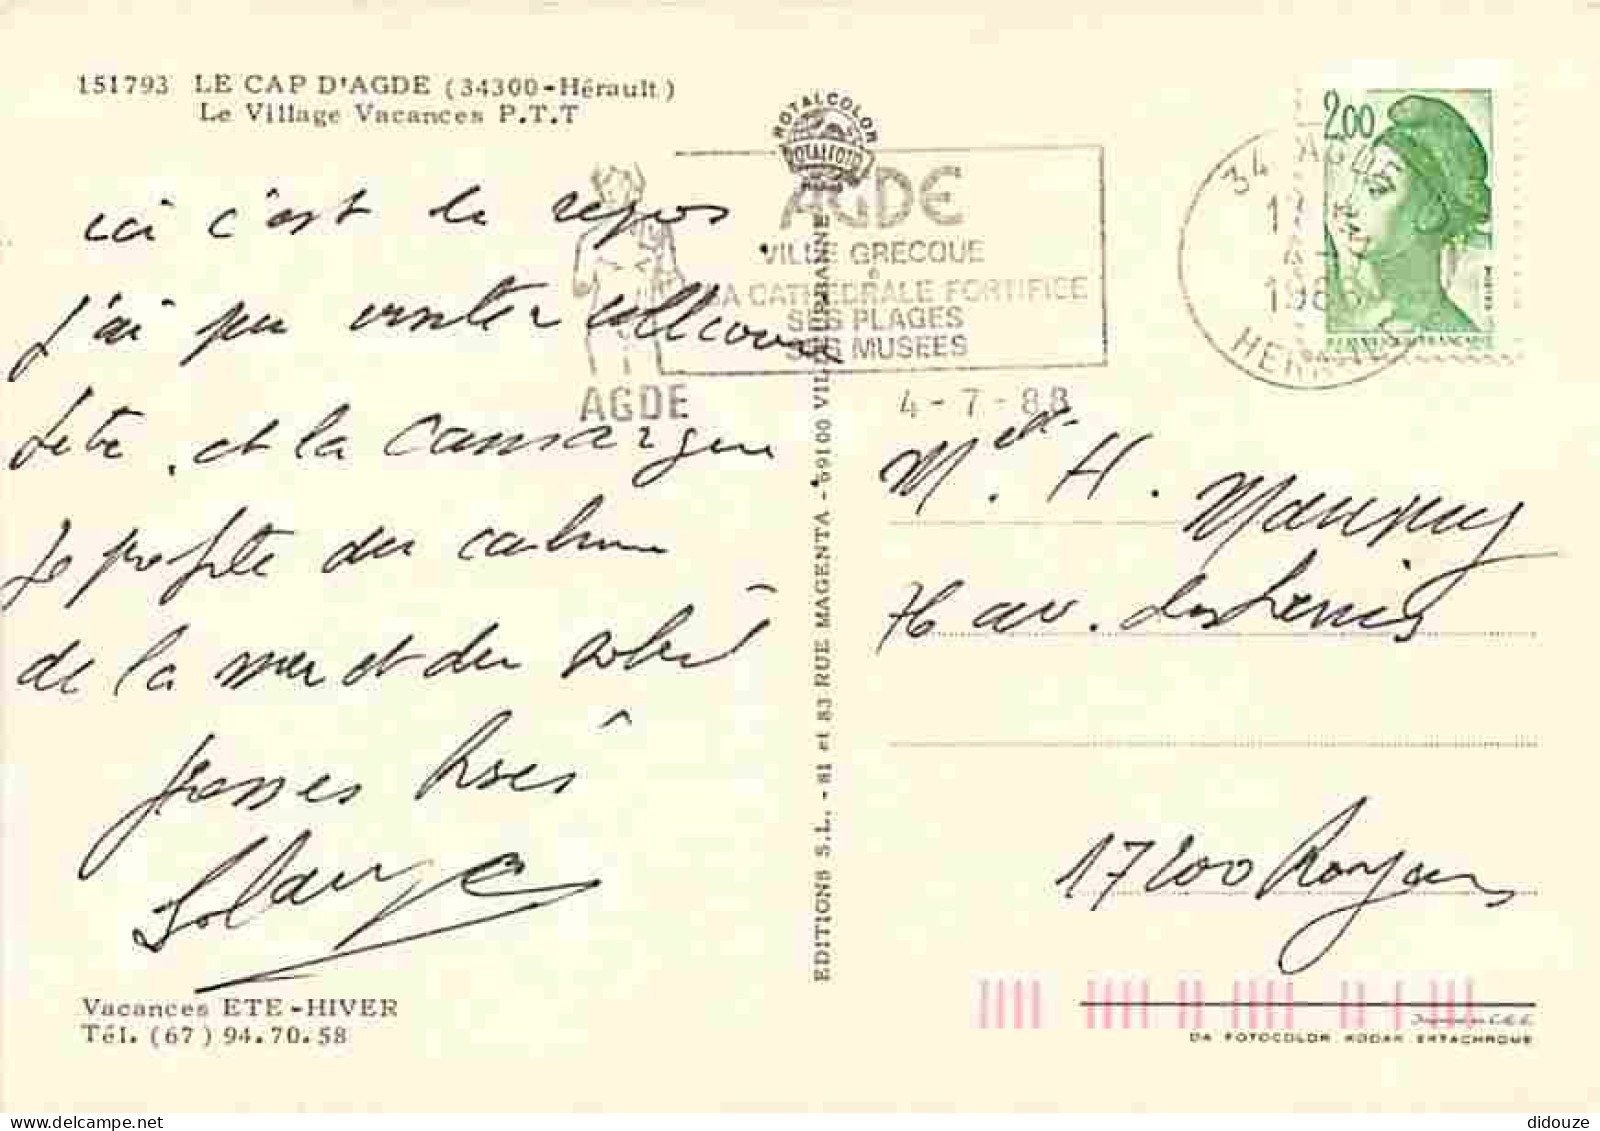 151793 LE CAP D'AGDE (34300-Hérault)
Le Village Vacances P.T.T
ROTALCOLOR
ROTALFOTO
AGDE
VILLE GRECQUE
SA CATHEDRALE FORTIFIEE
SES PLAGES
SES MUSEES
AGDE
4-7-88
2,00
34 AGDE
17
HERAULT
ici c'est le repos
j'ai pu visiter
fête, et la Camargue
Je profite du calme
de la mer et du soleil
grosses bises
Solange
EDITIONS S.L. - 81 et 83 RUE MAGENTA - 69100 VILLEURBANNE
Melle. H.
76 av. des
17200 Royan
Vacances ETE-HIVER
Tél. (67) 94.70.58
DA FOTOCOLOR KODAK EKTACHROME
didouze